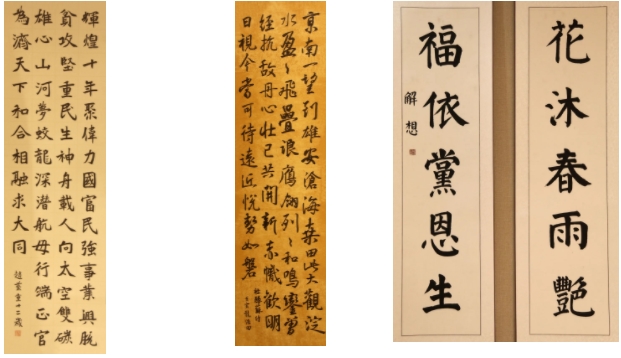 輝煌十年聚偉力國富民強事業興脫
貧攻堅重民生神舟載人向太空雙碳
雄心山河夢蛟龍深潛航母行端正官
為濟天下和合相融求大同
京南一望到雄安滄海桑田此大觀淀
水盈〻飛疊浪鷹翎列〻和鳴鑾曾
經抗敵丹心壯已共開新赤幟歡明
日視今當可待遠近悅勢如磐
花沐春雨豔
福依黨恩生
解想